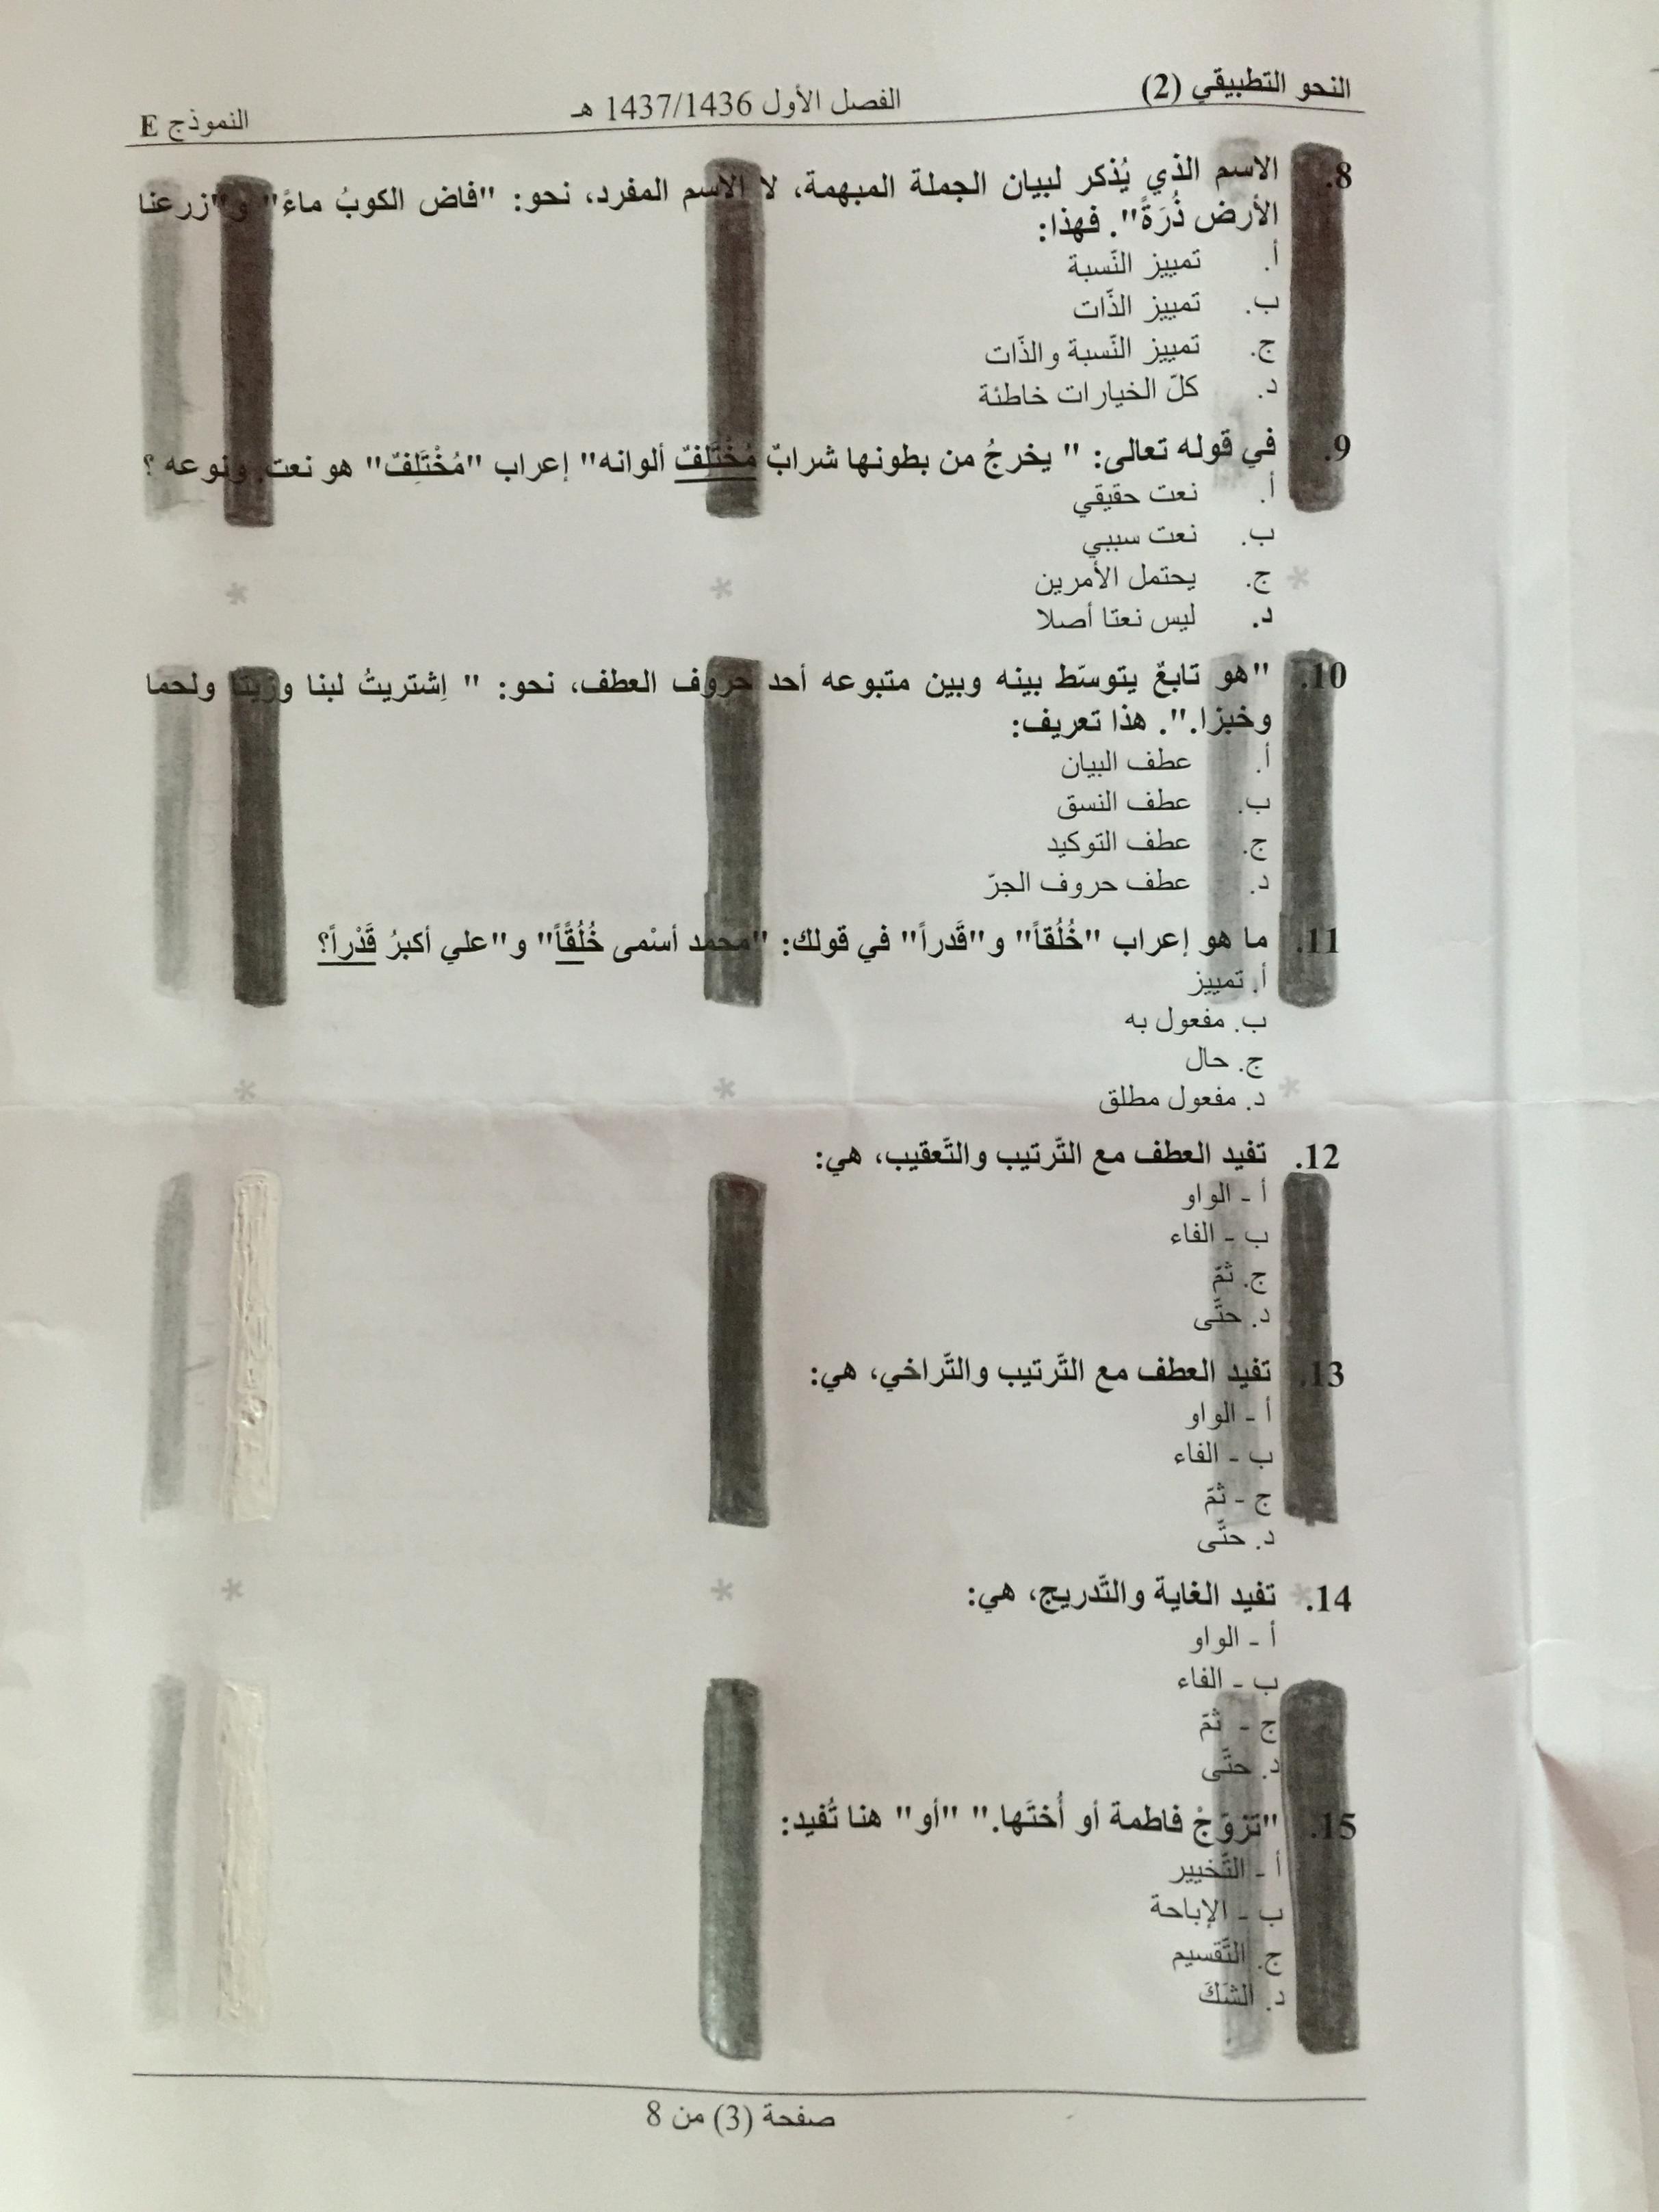 النحو التطبيقي (2)
الفصل الأول 1437/1436 هـ
النموذج E
8. الاسم الذي يُذكر لبيان الجملة المبهمة، لا الاسم المفرد، نحو: "فاض الكوبُ ماءً" و"زرعنا
الأرض ذُرَةً". فهذا:
أ. تمييز النّسبة
ب. تمييز الذّات
ج. تمييز النّسبة والذّات
د. كلّ الخيارات خاطئة
9. في قوله تعالى: " يخرجُ من بطونها شرابٌ مُخْتَلِفٌ ألوانه" إعراب "مُخْتَلِفٌ" هو نعت. ونوعه ؟
أ. نعت حقيقي
ب. نعت سببي
ج. يحتمل الأمرين
د. ليس نعتا أصلا
10. "هو تابعٌ يتوسّط بينه وبين متبوعه أحد حروف العطف، نحو: " اِشتريتُ لبنا وزيتا ولحما
وخبزا.". هذا تعريف:
أ. عطف البيان
ب. عطف النسق
ج. عطف التوكيد
د. عطف حروف الجرّ
11. ما هو إعراب "خُلُقاً" و"قَدراً" في قولك: "محمد أسْمى خُلُقاً" و"علي أكبرُ قَدْراً؟
أ. تمييز
ب. مفعول به
ج. حال
د. مفعول مطلق
12. تفيد العطف مع التّرتيب والتّعقيب، هي:
أ - الواو
ب - الفاء
ج. ثمّ
د. حتّى
13. تفيد العطف مع التّرتيب والتّراخي، هي:
أ - الواو
ب - الفاء
ج - ثمّ
د. حتّى
14. تفيد الغاية والتّدريج، هي:
أ - الواو
ب - الفاء
ج - ثمّ
د. حتّى
15. "تزوّجْ فاطمة أو أُختَها." "أو" هنا تُفيد:
أ - التّخيير
ب - الإباحة
ج. التّقسيم
د. الشكّ
صفحة (3) من 8